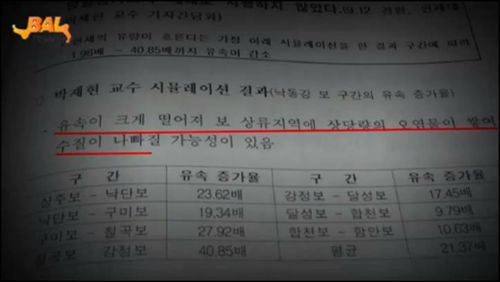 BAL
시행하지 않았다.
시뮬레이션을 한 결과 구간에 따라
1.96배 ~ 40.85배까지 유속이 감소
○ 박재현 교수 시뮬레이션 결과(낙동강 보 구간의 유속 증가율)
유속이 크게 떨어져 보 상류지역에 상당량의 오염물이 쌓이
수질이 나빠질 가능성이 있음
구 간 유속 증가율 구 간 유속 증가율
상주보 - 낙단보 23.62배 강정보 - 달성보 17.45배
낙단보 - 구미보 19.34배 달성보 - 합천보 9.79배
구미보 - 칠곡보 27.92배 합천보 - 함안보 10.63배
칠곡보 - 강정보 40.85배 평균 21.37배